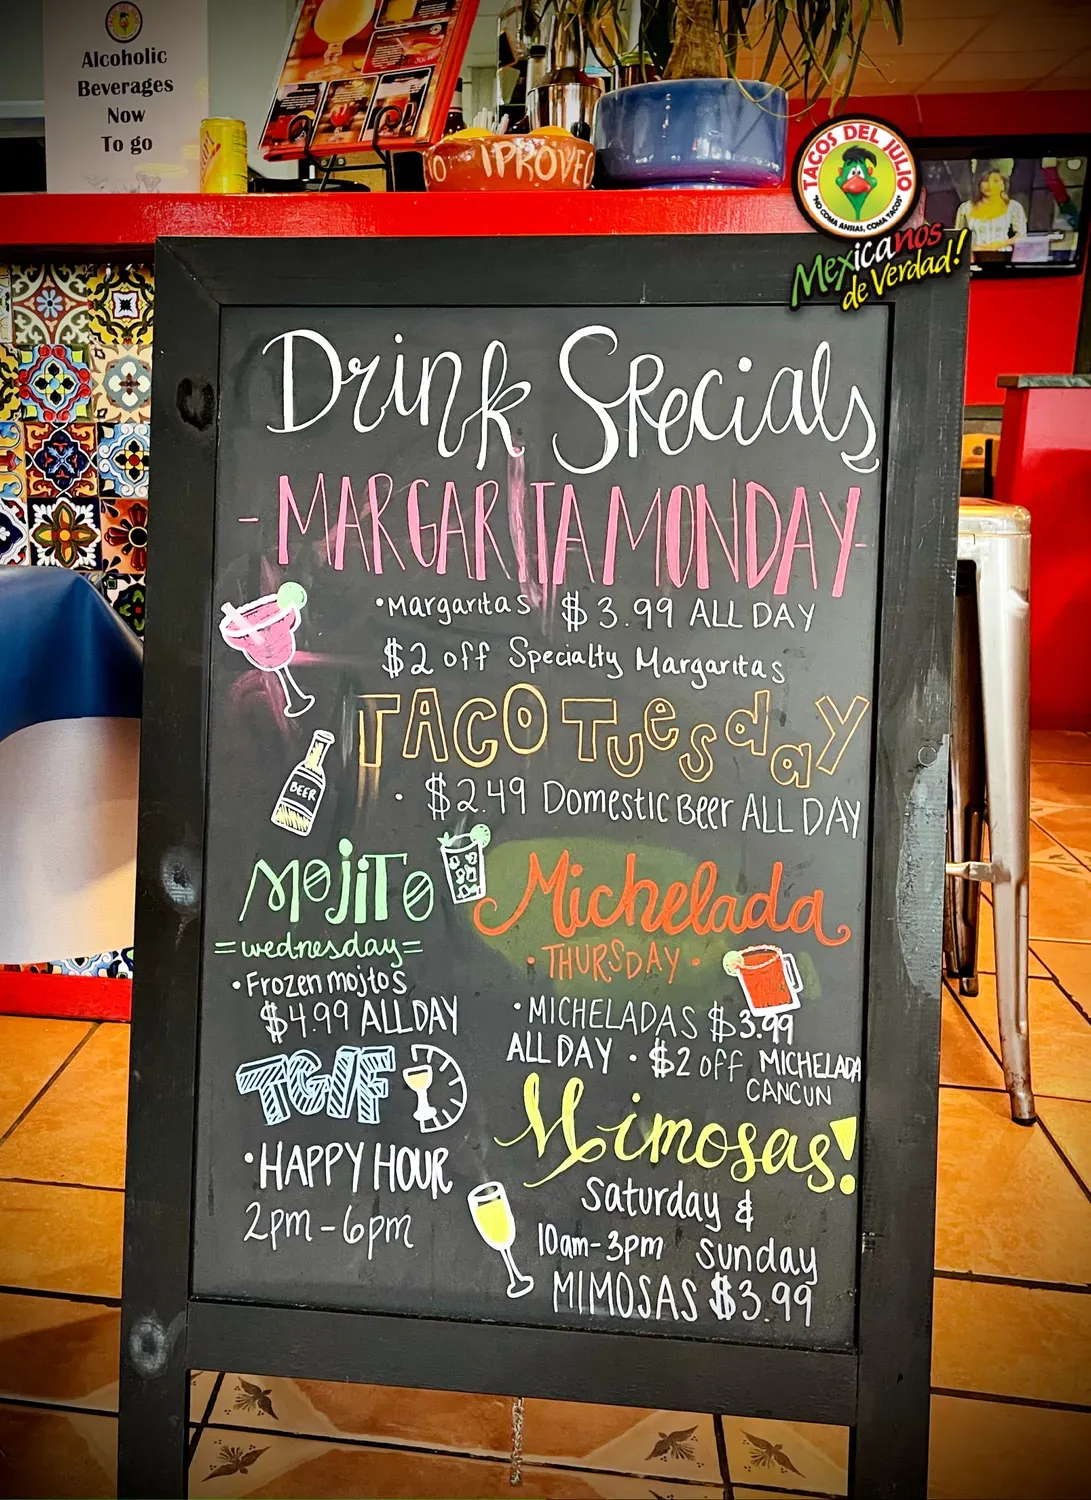 Alcoholic
Beverages
Now
To go
¡PROVE
TACOS DEL JULIO
"NO COMA ANSIAS, COMA TACOS"
Mexicanos
de Verdad!
Drink Specials
- MARGARITA MONDAY -
• Margaritas $3.99 ALL DAY
$2 off Specialty Margaritas
TACO Tuesday
BEER
• $2.49 Domestic Beer ALL DAY
MOJITO
= wednesday =
• Frozen mojitos
$4.99 ALL DAY
Michelada
• THURSDAY •
• MICHELADAS $3.99
ALL DAY • $2 off MICHELADA
CANCUN
TGIF
• HAPPY HOUR
2pm - 6pm
Mimosas!
Saturday &
10am - 3pm Sunday
MIMOSAS $3.99